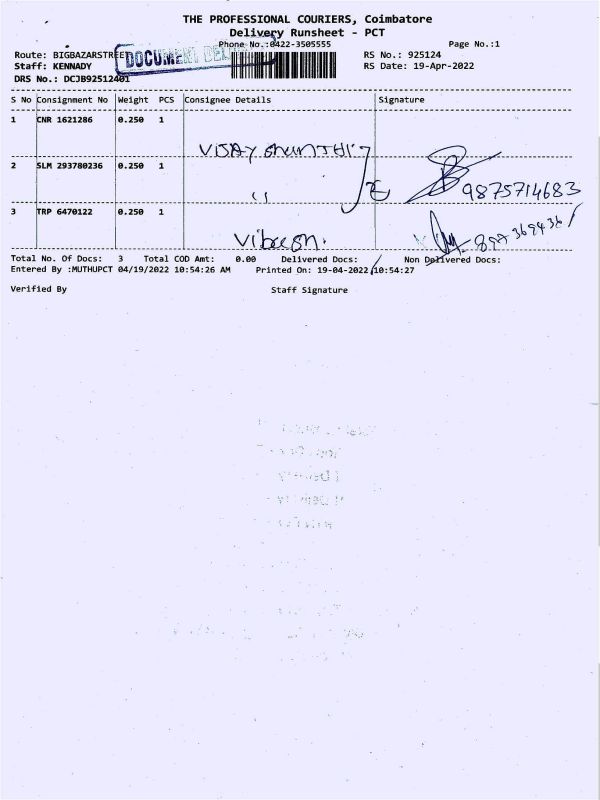 THE PROFESSIONAL COURIERS, Coimbatore
Delivery Runsheet - PCT
Phone No.:0422-3505555 Page No.:1
Route: BIGBAZARSTREET DOCUMENT RS No.: 925124
Staff: KENNADY RS Date: 19-Apr-2022
DRS No.: DCJB92512401
S No Consignment No Weight PCS Consignee Details Signature
1 CNR 1621286 0.250 1
VIJAY
2 SLM 293780236 0.250 1
" 9875714683
3 TRP 6470122 0.250 1
Total No. Of Docs: 3 Total COD Amt: 0.00 Delivered Docs: Non Delivered Docs:
Entered By :MUTHUPCT 04/19/2022 10:54:26 AM Printed On: 19-04-2022 10:54:27
Verified By Staff Signature